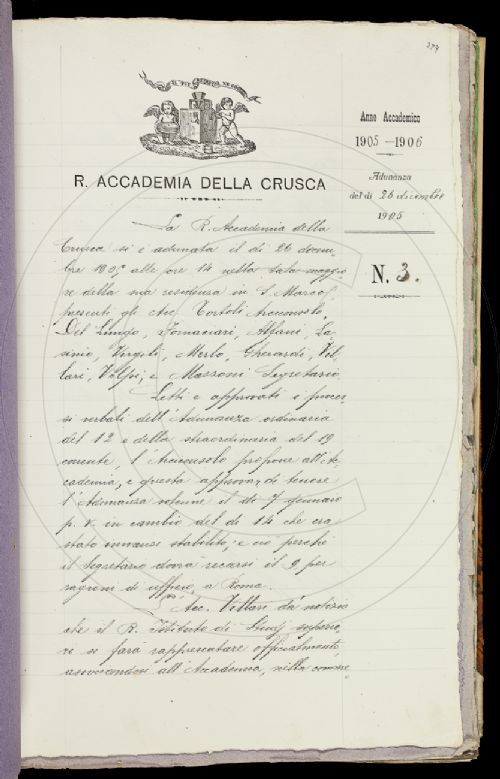 274
IL PIÙ BEL FIOR NE COGLIE
R. ACCADEMIA DELLA CRUSCA
Anno Accademico
1905-1906
Adunanza
del dì 26 decembre
1905
N. 3.
La R. Accademia della
Crusca si è adunata il dì 26 decem-
bre 1905 alle ore 14 nella sala maggio-
re della sua residenza in S. Marco;
presenti gli Acc. Tortoli Arciconsolo,
Del Lungo, Tommasini, Alfani, La-
sinio, Virgili, Merlo, Gherardi, Vil-
lari, Volpi, e Mazzoni Segretario.
Letti e approvati i proces-
si verbali dell'Adunanza ordinaria
del 12 e della straordinaria del 19
corrente, l'Arciconsolo propone all'Ac-
cademia, e questa approva, di tenere
l'Adunanza solenne il dì 7 gennaio
p. v. in cambio del dì 14 che era
stato innanzi stabilito; e ciò perchè
il Segretario dovrà recarsi il 9 per
ragioni di ufficio, a Roma.
L'Acc. Villari dà notizia
che il R. Istituto di Studj superio-
ri si farà rappresentare officialmente,
associandosi all'Accademia, nella comme-